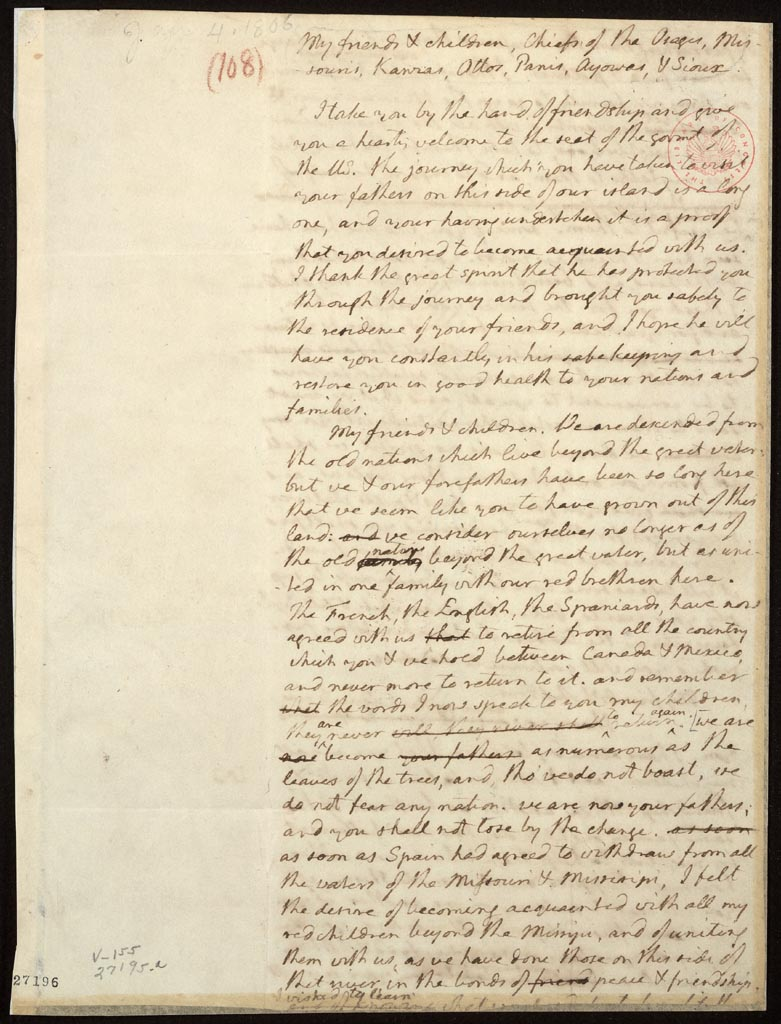 Jany. 4. 1806
(108)
My friends & children, Chiefs of the Osages, Mis-
souris, Kanzas, Ottos, Panis, Ayowas, & Sioux.
I take you by the hand of friendship and give
you a hearty welcome to the seat of the govmt of
the US. the journey which you have taken to visit
your fathers on this side of our island is a long
one, and your having undertaken it is a proof
that you desired to become acquainted with us.
I thank the great spirit that he has protected you
through the journey and brought you safely to
the residence of your friends, and I hope he will
have you constantly in his safe keeping and
restore you in good health to your nations and
families.
My friends & children. We are descended from
the old nations which live beyond the great water:
but we & our forefathers have been so long here
that we seem like you to have grown out of this
land: and we consider ourselves no longer as of
the old nations beyond the great water, but as uni-
-ted in one family with our red brethren here.
The French, the English, the Spaniards, have now
agreed with us that to retire from all the country
which you & we hold between Canada & Mexico,
and never more to return to it. and remember
what the words I now speak to you my children,
they are never will they never shall to return again. [we are
now become your fathers as numerous as the
leaves of the trees, and, tho' we do not boast, we
do not fear any nation. we are now your fathers;
and you shall not lose by the change. as soon
as soon as Spain had agreed to withdraw from all
the waters of the Missouri & Missisipi, I felt
the desire of becoming acquainted with all my
red children beyond the Missipi, and of uniting
them with us, as we have done those on this side of
that river, in the bonds of friend peace & friendship.
I wished to learn
V-155
27195-a
27196